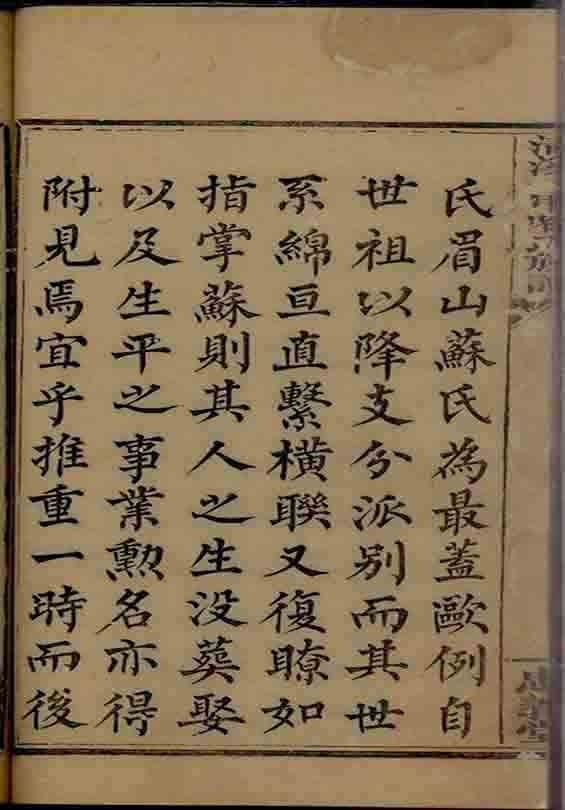 氏眉山蘇氏為最蓋歐例自
世祖以降支分派別而其世
系綿亘直繫橫聯又復瞭如
指掌蘇則其人之生沒葬娶
以及生平之事業勲名亦得
附見焉宜乎推重一時而後